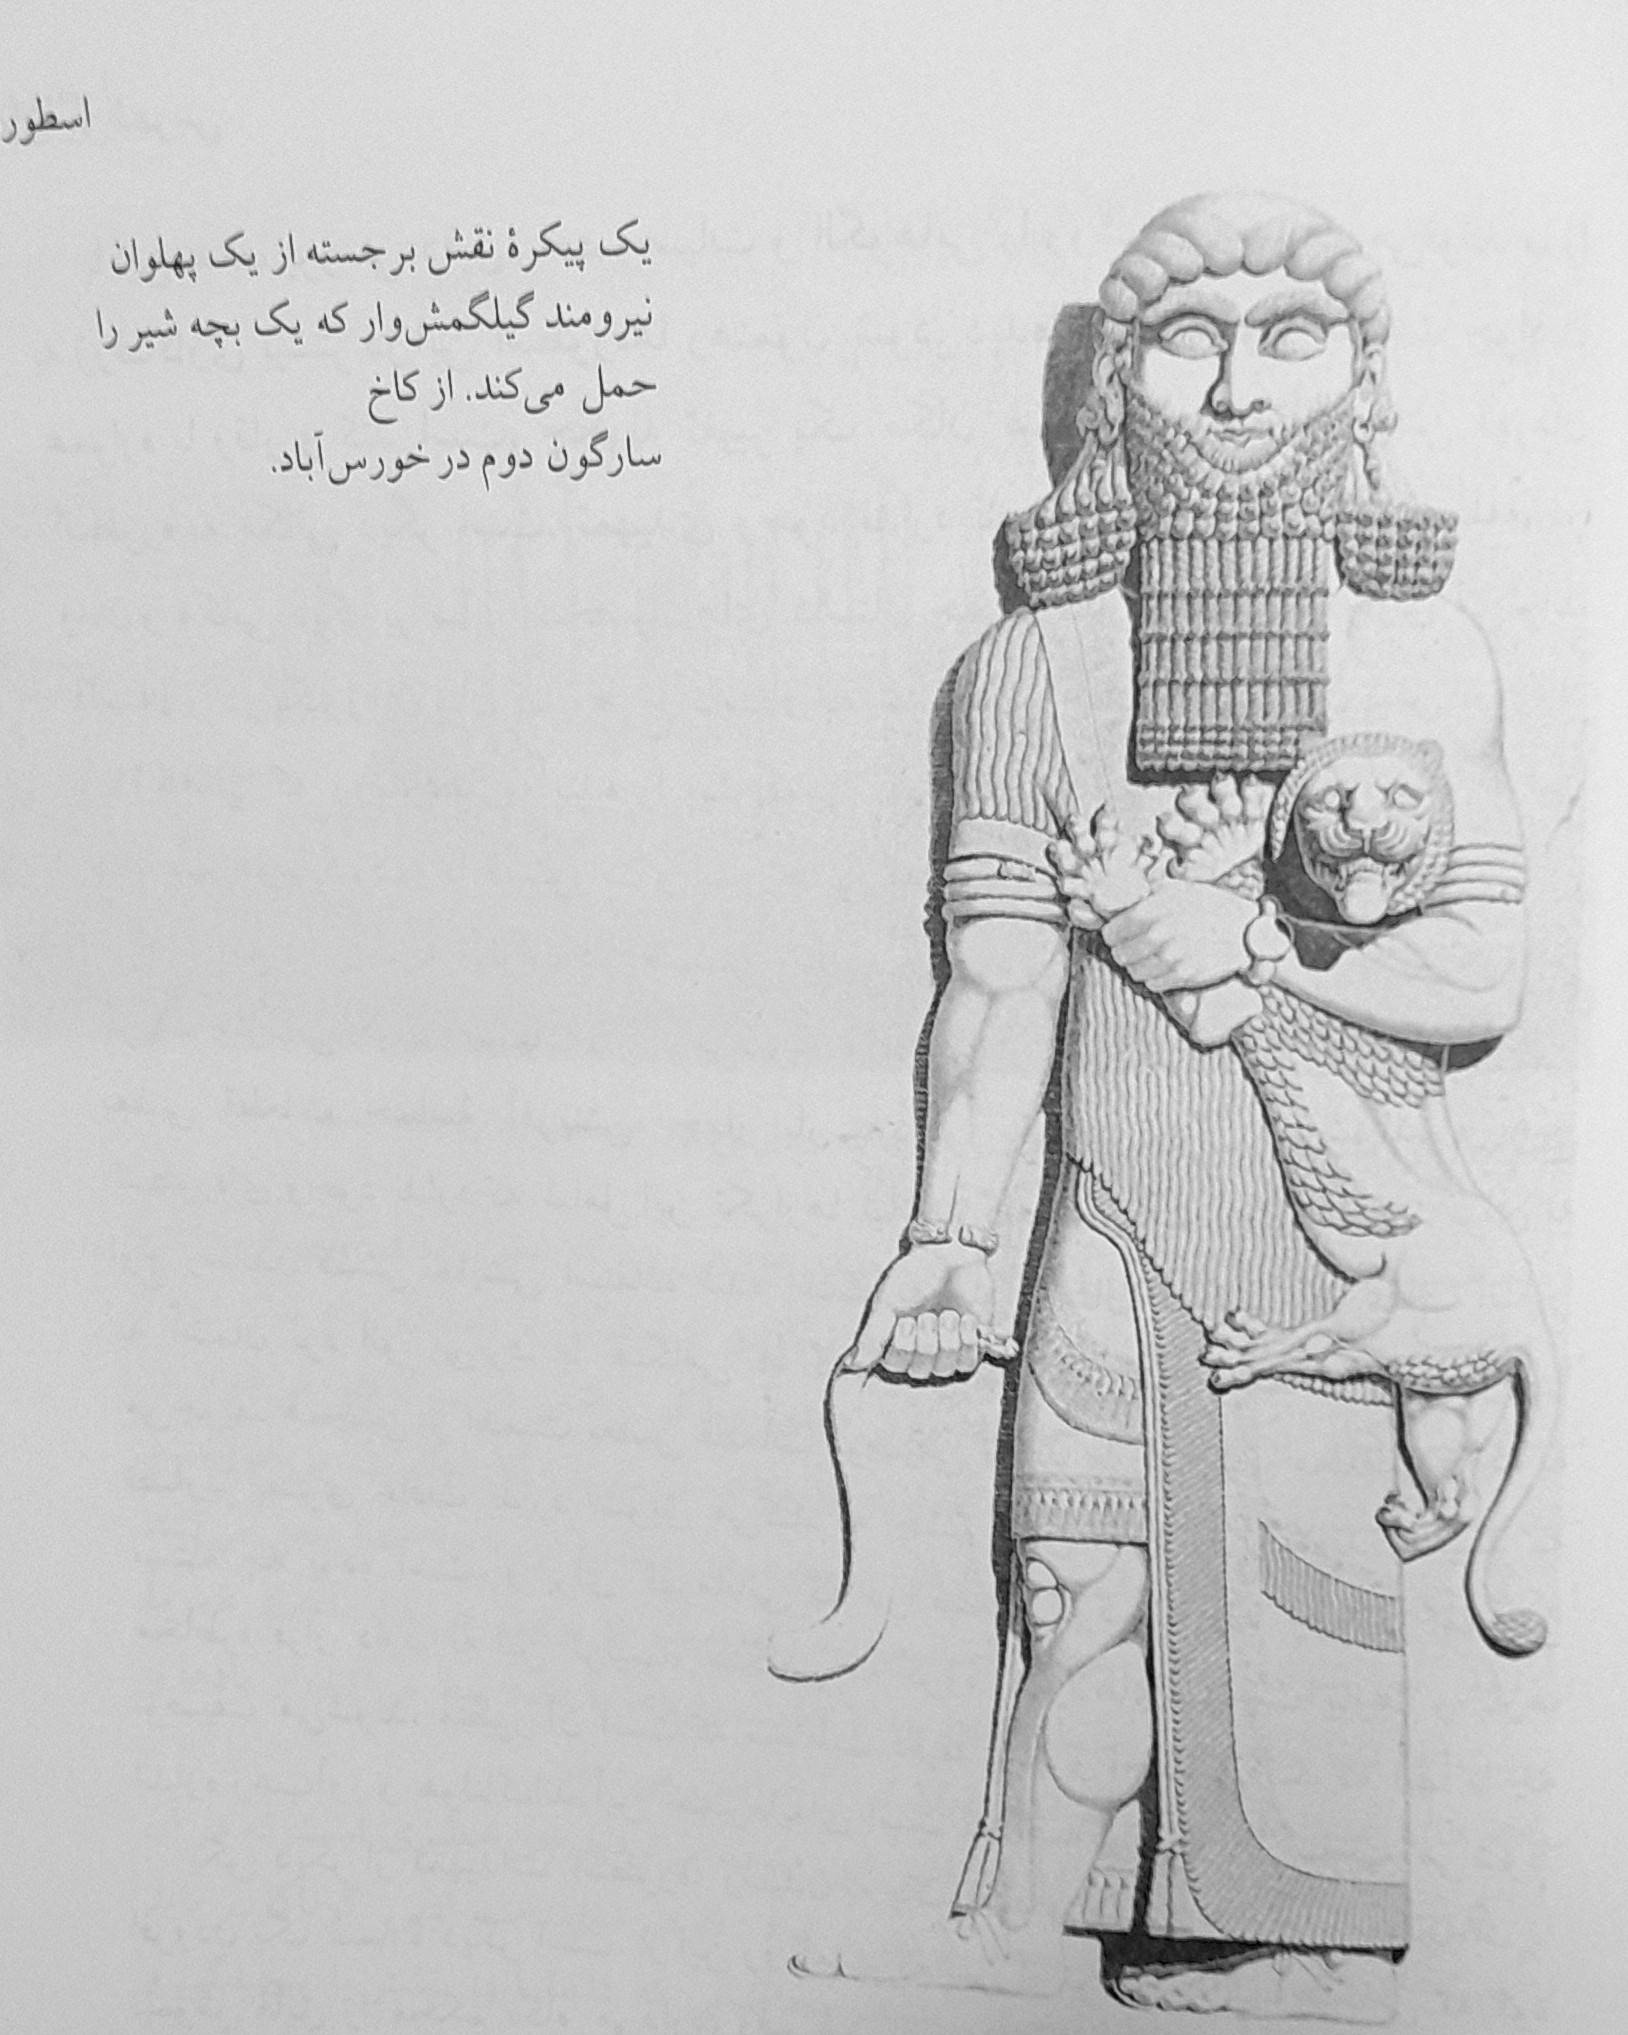 اسطور
یک پیکرهٔ نقش برجسته از یک پهلوان
نیرومند گیلگمش‌وار که یک بچه شیر را
حمل می‌کند. از کاخ
سارگون دوم در خورس‌آباد.